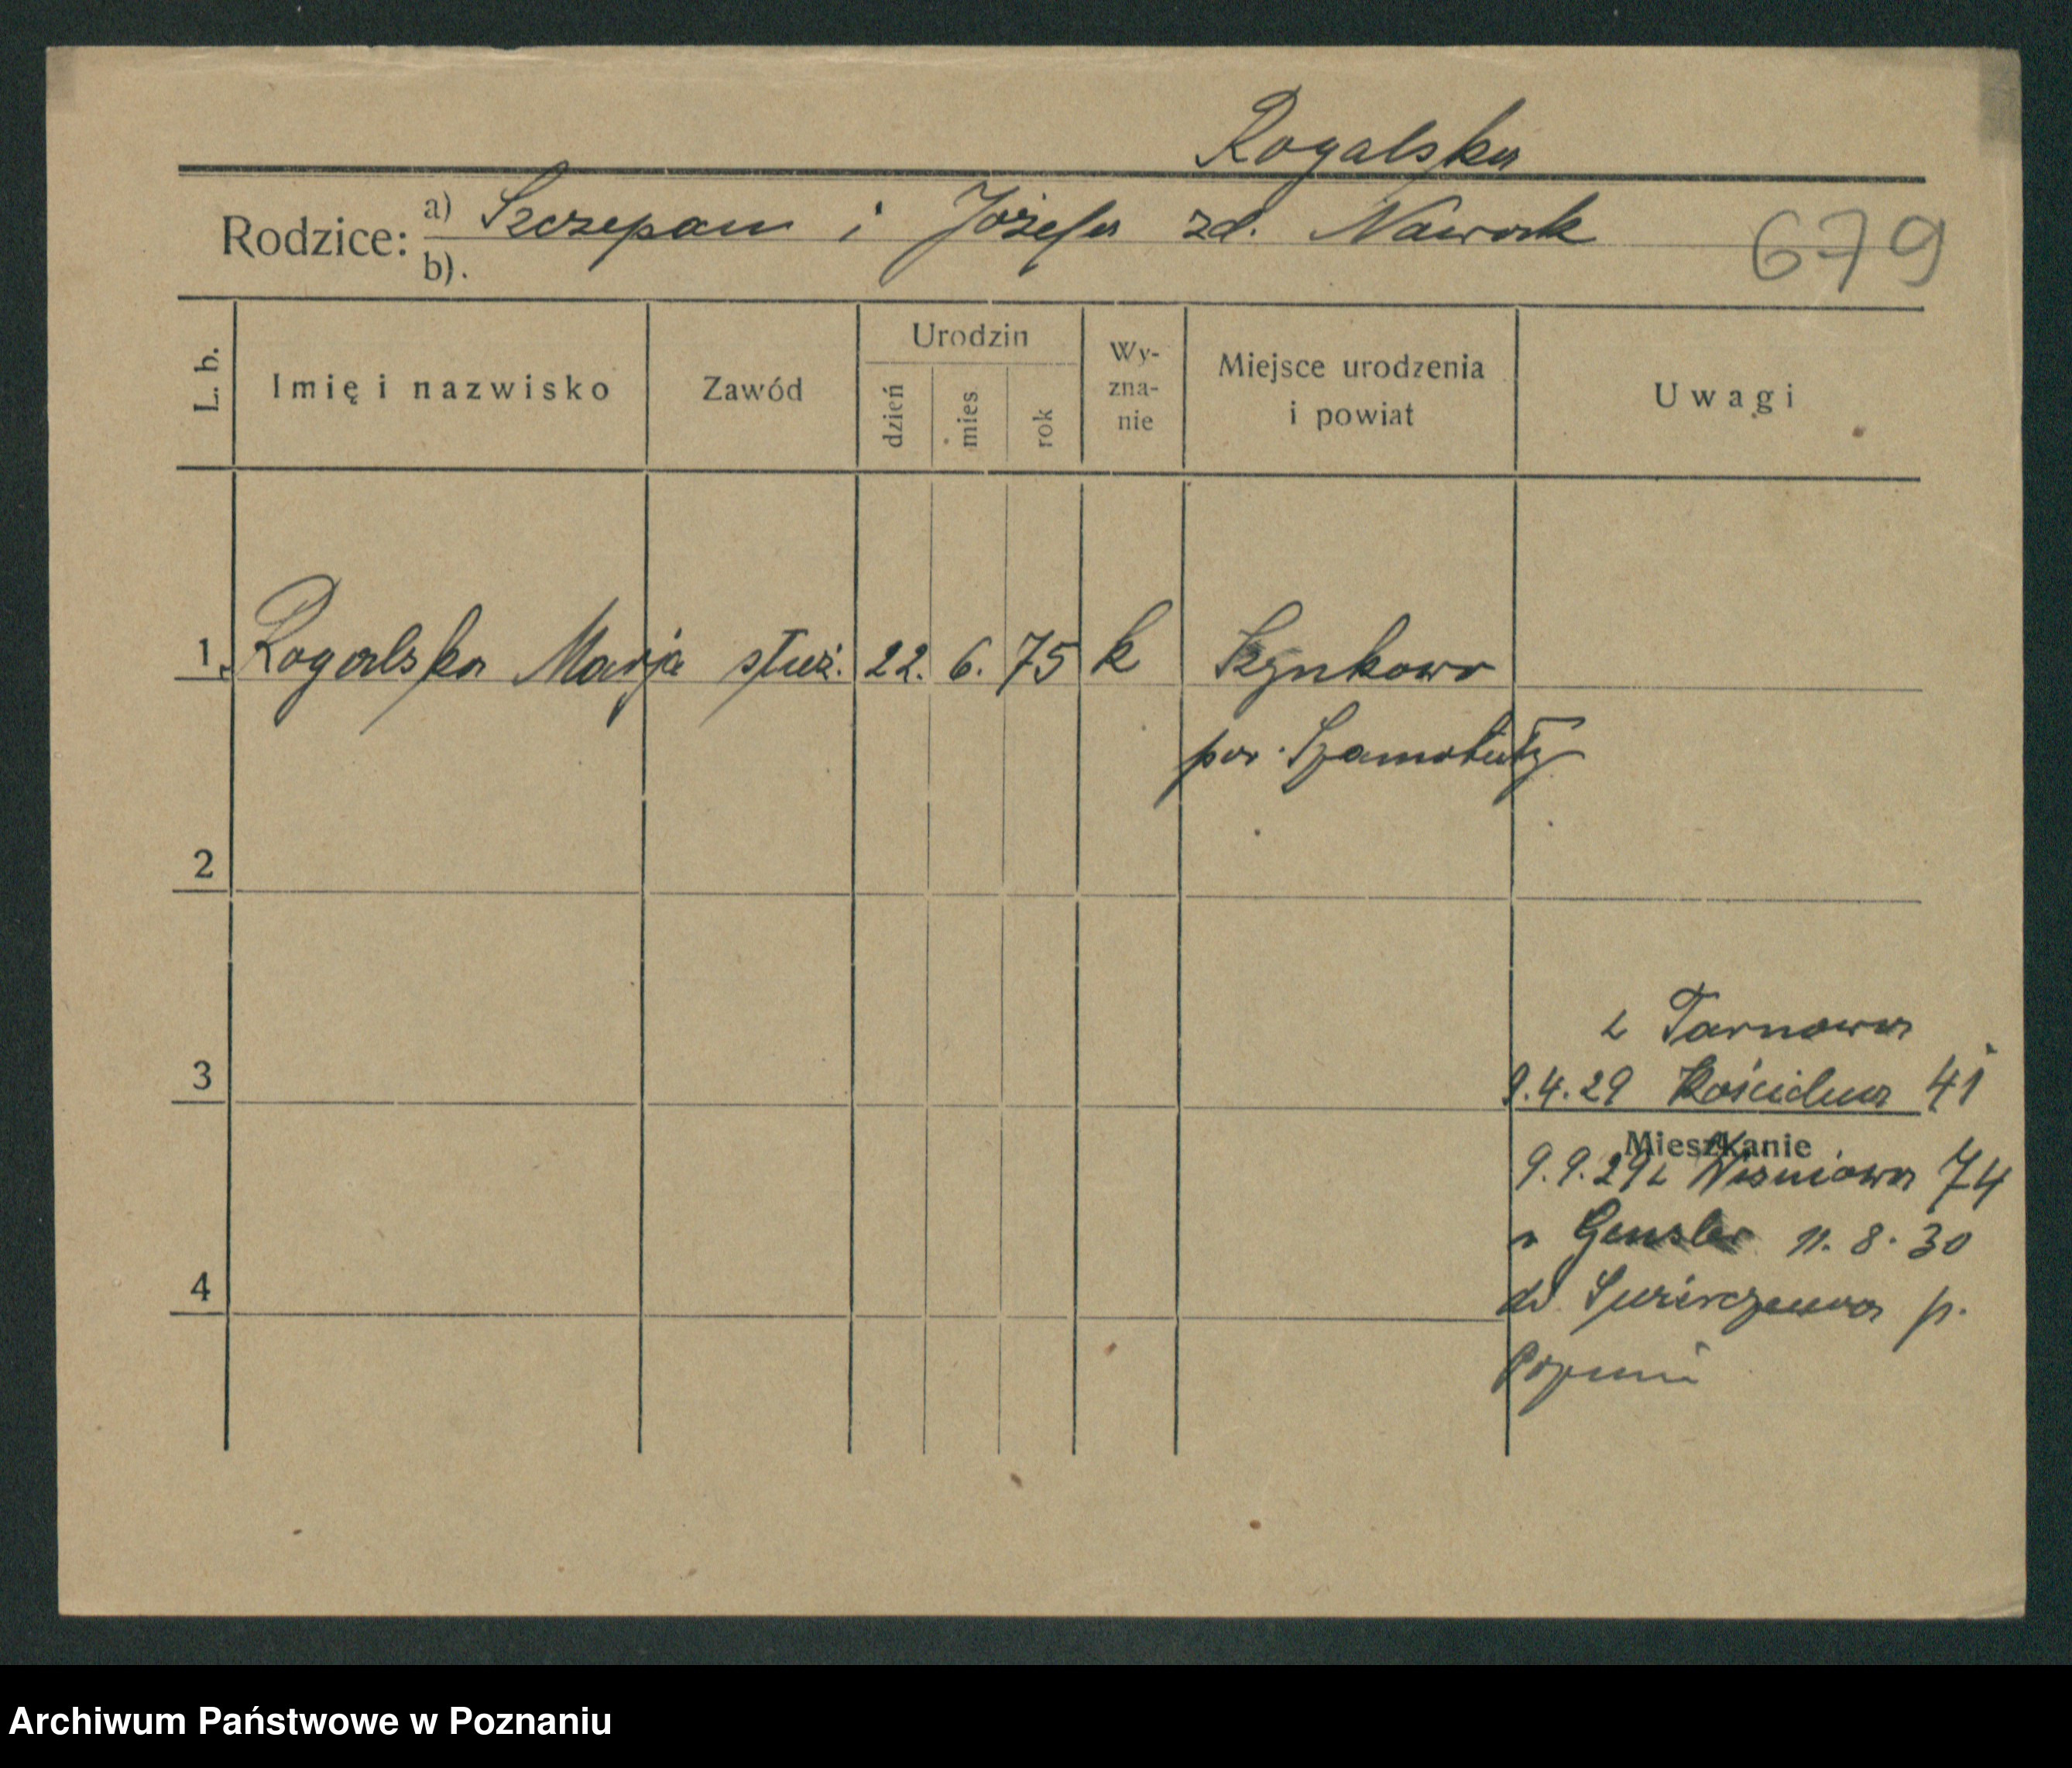 Rogalska
Rodzice: a) Szczepan i Józefa zd. Nawrok
679
b).
L. b. Imię i nazwisko Zawód Urodzin dzień mies rok Wy-zna-nie Miejsce urodzenia i powiat Uwagi
1. Rogalska Marja służ. 22. 6. 75 k
pow. Szamotuły
2
z Tarnowa
3 9.4.29 41
Mieszkanie
9.9.29 z Wiśniowa 74
11. 8. 30
4 do p.
Archiwum Państwowe w Poznaniu